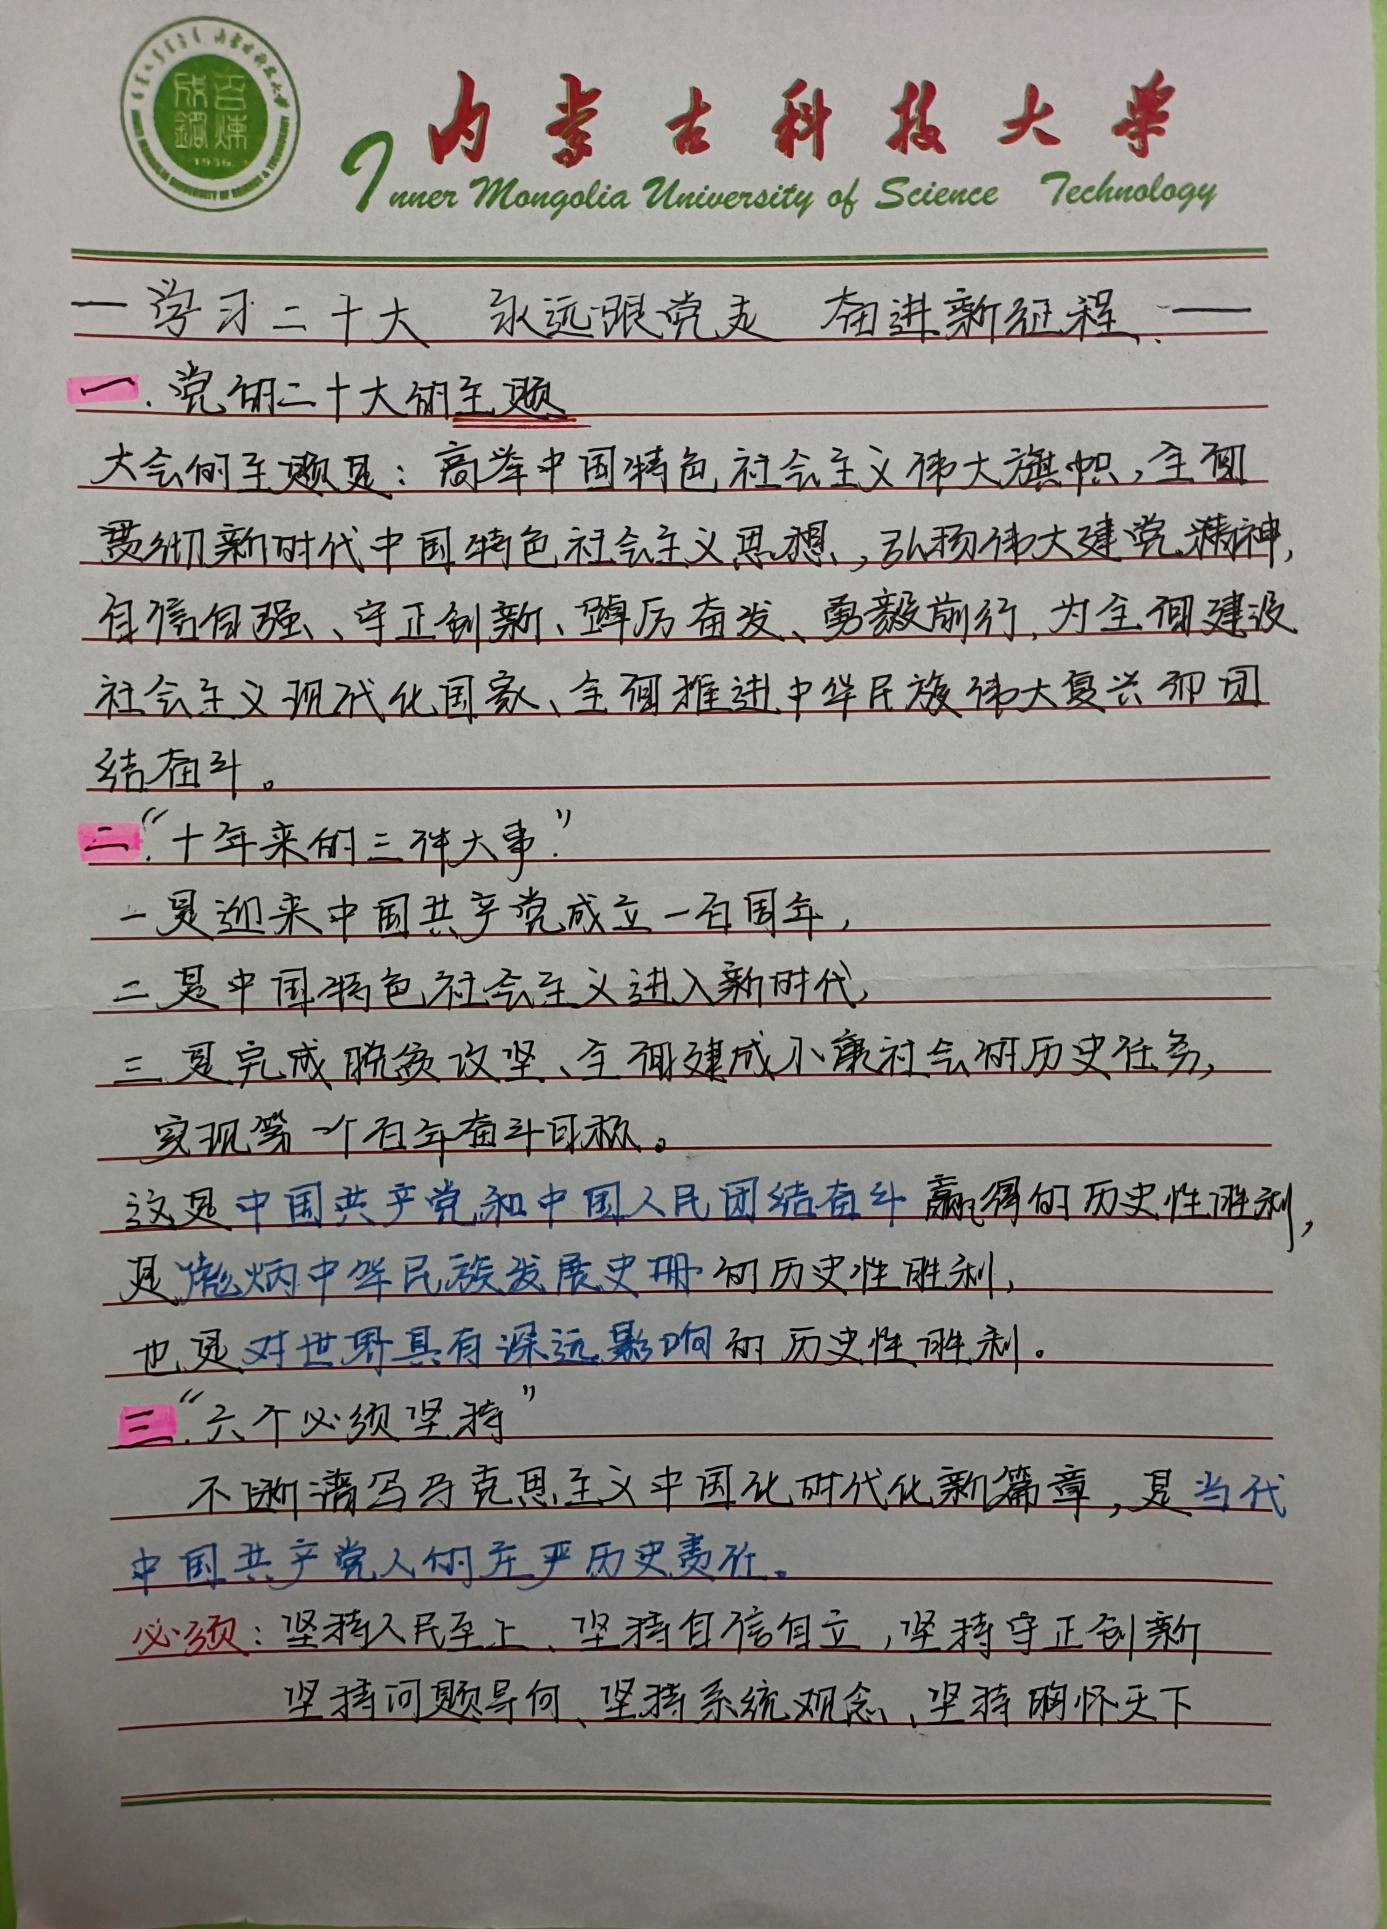 百炼成钢
1956
内蒙古科技大学
Inner Mongolia University of Science Technology
一学习二十大 永远跟党走 奋进新征程.——
一.党的二十大的主题
大会的主题是：高举中国特色社会主义伟大旗帜，全面
贯彻新时代中国特色社会主义思想，弘扬伟大建党精神，
自信自强、守正创新、踔厉奋发、勇毅前行，为全面建设
社会主义现代化国家、全面推进中华民族伟大复兴而团
结奋斗。
二.“十年来的三件大事.”
一是迎来中国共产党成立一百周年，
二是中国特色社会主义进入新时代，
三是完成脱贫攻坚、全面建成小康社会的历史任务，
实现第一个百年奋斗目标。
这是中国共产党和中国人民团结奋斗赢得的历史性胜利，
是彪炳中华民族发展史册的历史性胜利，
也是对世界具有深远影响的历史性胜利。
三.“六个必须坚持”
不断谱写马克思主义中国化时代化新篇章，是当代
中国共产党人的庄严历史责任。
必须：坚持人民至上、坚持自信自立，坚持守正创新
坚持问题导向、坚持系统观念、坚持胸怀天下